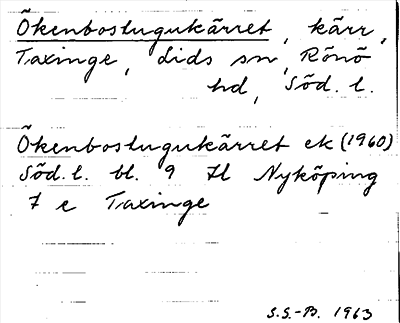 Ökenbostugukärret, kärr,
Taxinge, dids sn, Rönö
hd, Söd. l.
Ökenbostugukärret ek (1960)
Söd. l. bl. 9 H Nyköping
7 e Taxinge
S.S.-B. 1963